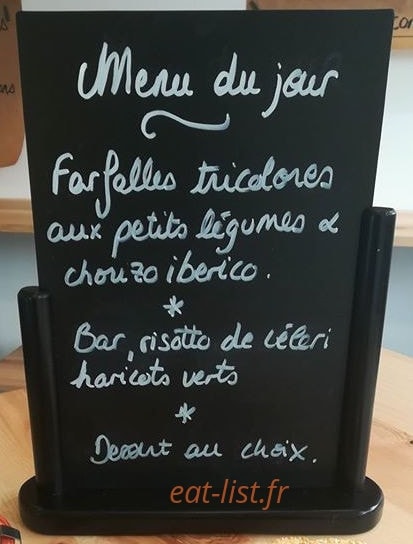 Menu du jour
Farfalles tricolores
aux petits légumes &
chorizo iberico.
*
Bar, risotto de céleri
haricots verts
*
Dessert au choix.
eat-list.fr